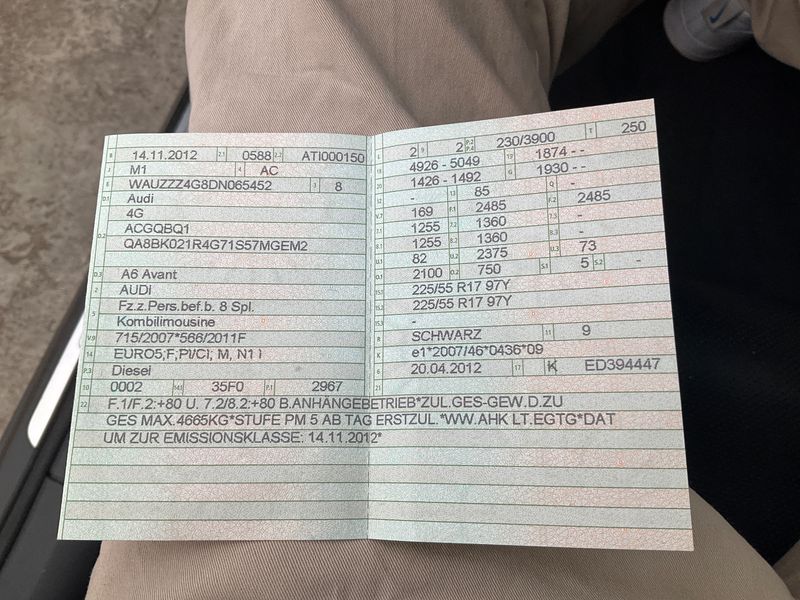 B 14.11.2012 2.1 0588 2.2 ATI000150
J M1 4 AC
E WAUZZZ4G8DN065452 3 8
D.1 Audi
4G
D.2 ACGQBQ1
QA8BK021R4G71S57MGEM2
D.3 A6 Avant
2 AUDI
5 Fz.z.Pers.bef.b. 8 Spl.
Kombilimousine
V.9 715/2007*566/2011F
14 EURO5;F,PI/CI; M, N1 I
P.3 Diesel
10 0002 14.1 35F0 P.1 2967
L 2 9 2 P.2 P.4 230/3900 T 250
18 4926 - 5049 19 1874 - -
20 1426 - 1492 G 1930 - -
- 13 85 Q -
V.7 169 F.1 2485 F.2 2485
7.1 1255 7.2 1360 7.3 -
8.1 1255 8.2 1360 8.3 -
U.1 82 U.2 2375 U.3 73
O.1 2100 O.2 750 S.1 5 S.2 -
15.1 225/55 R17 97Y
15.2 225/55 R17 97Y
15.3 -
R SCHWARZ 11 9
K e1*2007/46*0436*09
6 20.04.2012 17 K ED394447
21
22 F.1/F.2:+80 U. 7.2/8.2:+80 B.ANHÄNGEBETRIEB*ZUL.GES-GEW.D.ZU
GES MAX.4665KG*STUFE PM 5 AB TAG ERSTZUL.*WW.AHK LT.EGTG*DAT
UM ZUR EMISSIONSKLASSE: 14.11.2012*